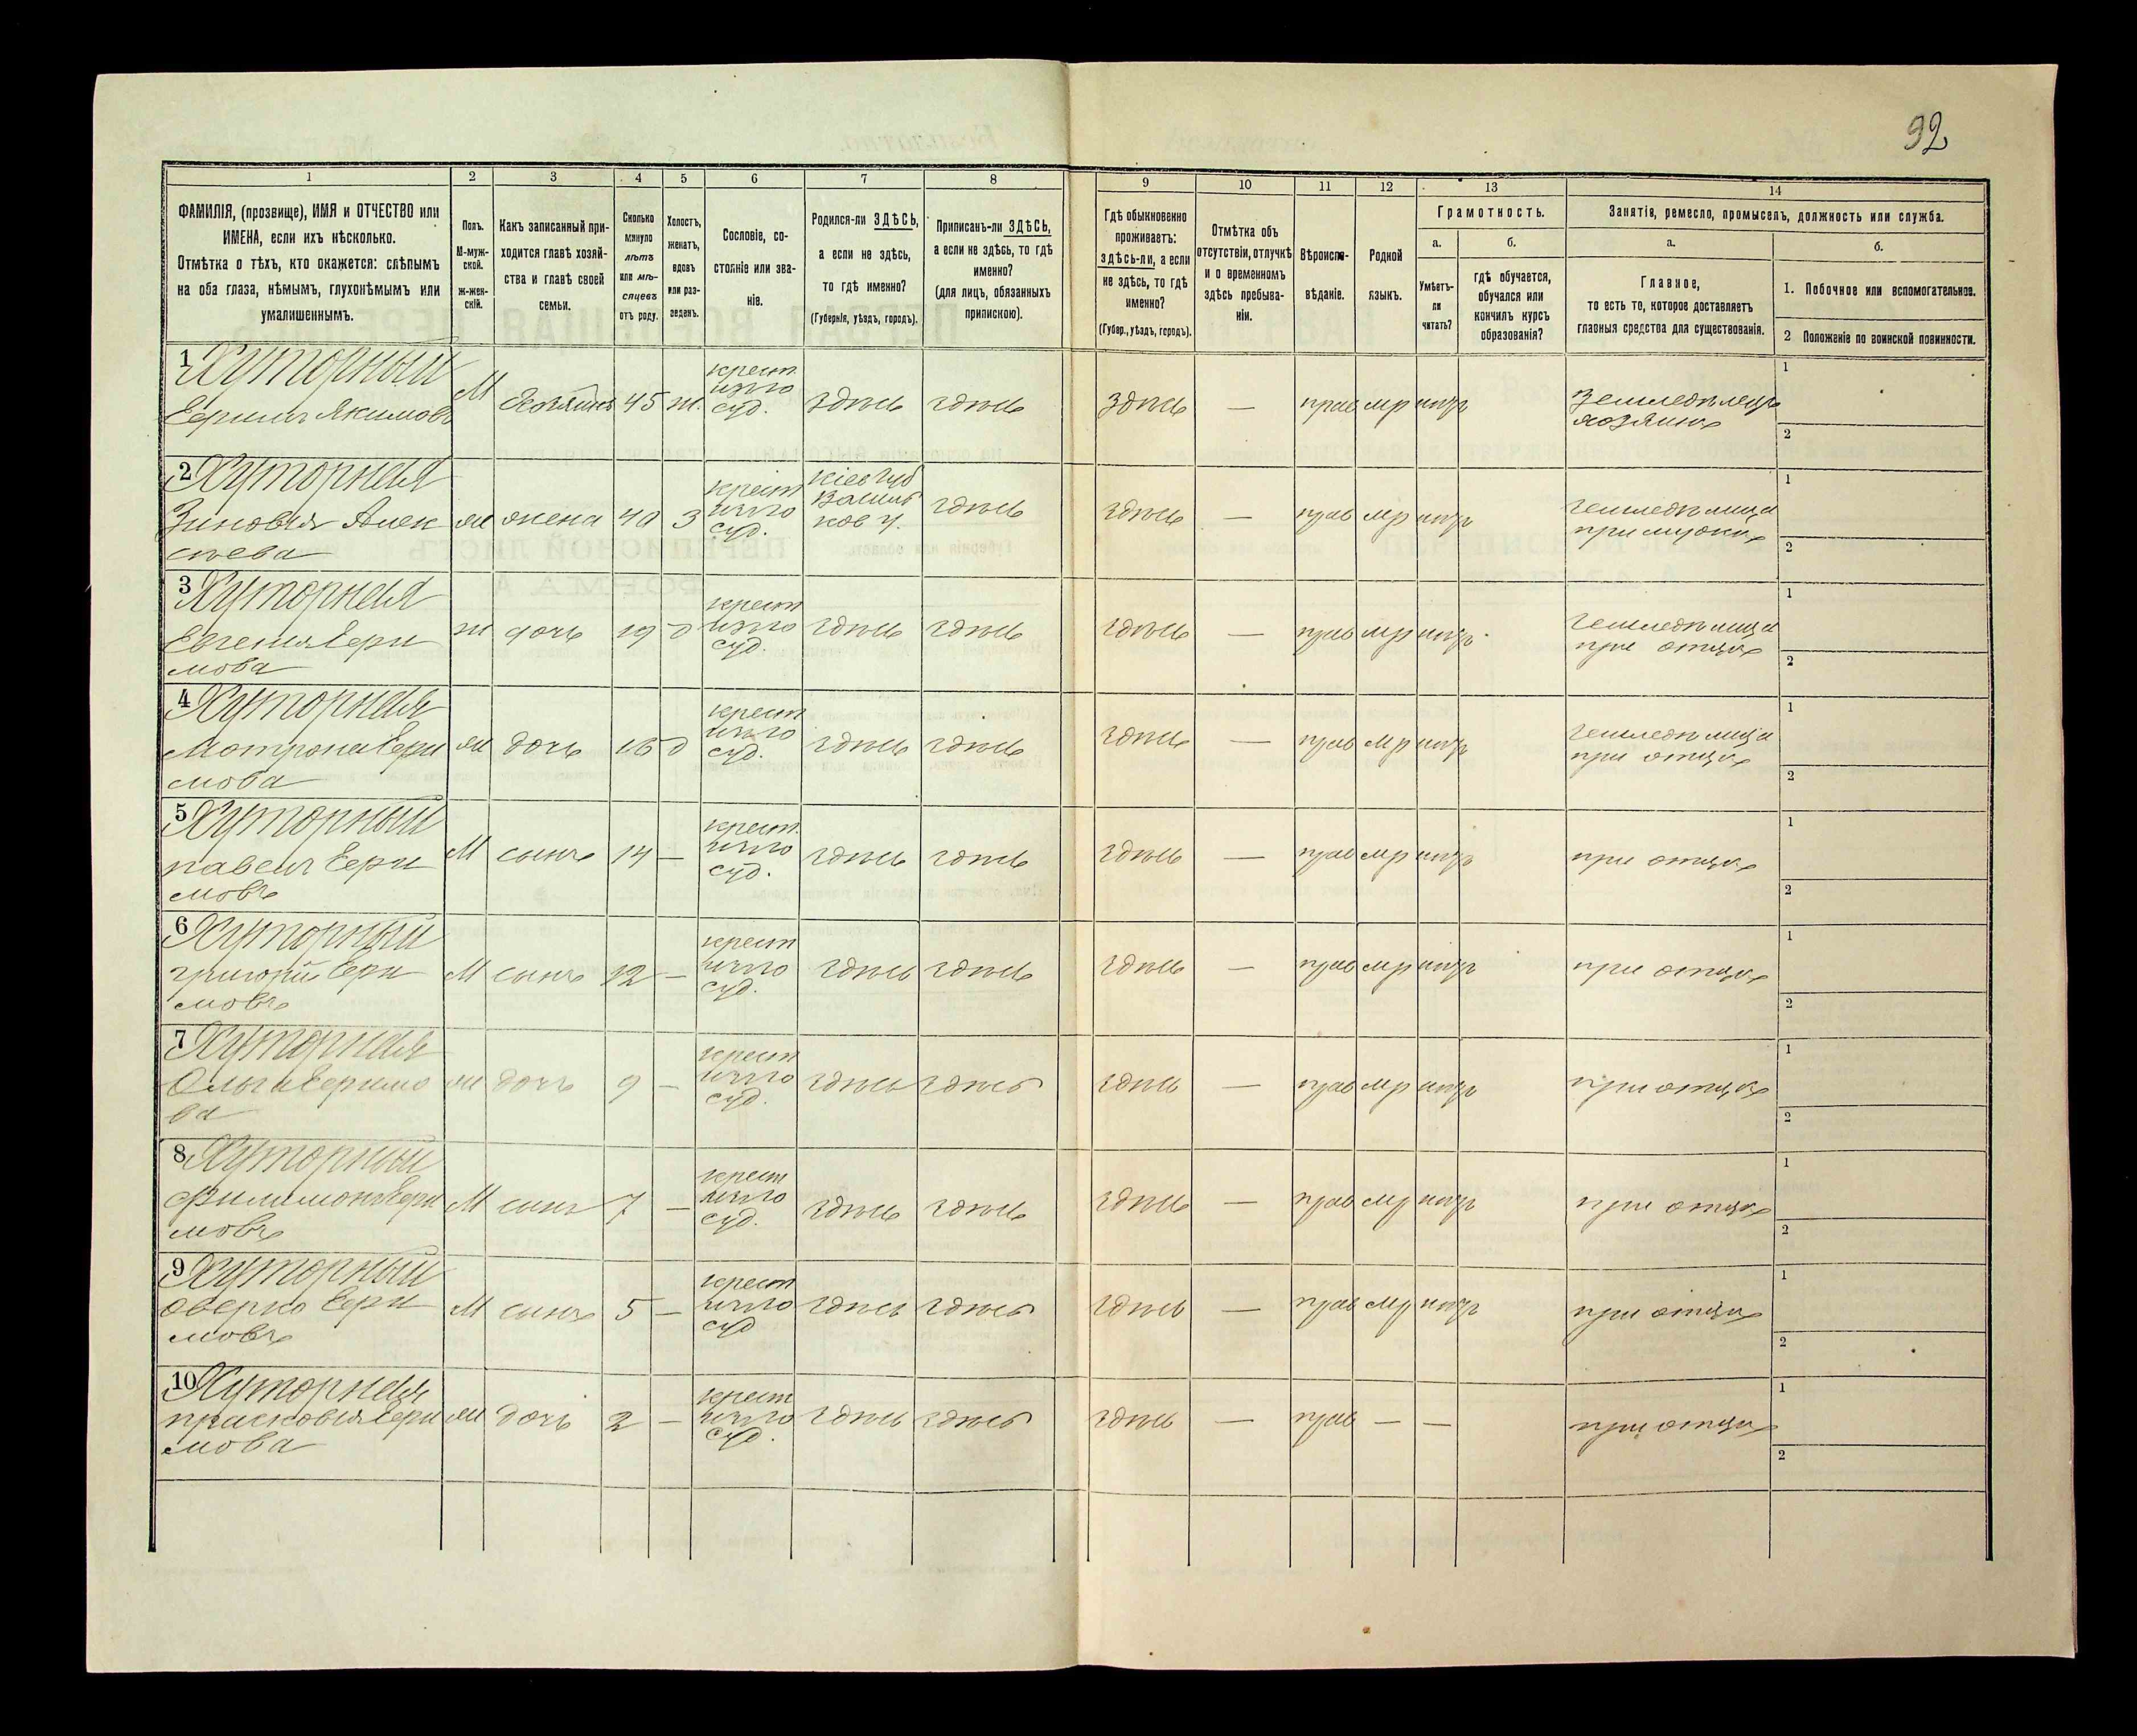 92
1 2 3 4 5 6 7 8 9 10 11 12 13 14
ФАМИЛІЯ, (прозвище), ИМЯ и ОТЧЕСТВО или
ИМЕНА, если ихъ нѣсколько.
Отмѣтка о тѣхъ, кто окажется: слѣпымъ
на оба глаза, нѣмымъ, глухонѣмымъ или
умалишеннымъ.
Полъ.
М-муж-
ской.
Ж-жен-
скій.
Какъ записанный при-
ходится главѣ хозяй-
ства и главѣ своей
семьи.
Сколько
минуло
лѣтъ
или мѣ-
сяцевъ
отъ роду.
Холостъ,
женатъ,
вдовъ
или раз-
веденъ.
Сословіе, со-
стояніе или зва-
ніе.
Родился-ли ЗДѢСЬ,
а если не здѣсь,
то гдѣ именно?
(Губернія, уѣздъ, городъ).
Приписанъ-ли ЗДѢСЬ,
а если не здѣсь, то гдѣ
именно?
(для лицъ, обязанныхъ
припискою).
Гдѣ обыкновенно
проживаетъ:
здѣсь-ли, а если
не здѣсь, то гдѣ
именно?
(Губер., уѣздъ, городъ).
Отмѣтка объ
отсутствіи, отлучкѣ
и о временномъ
здѣсь пребыва-
ніи.
Вѣроиспо-
вѣданіе.
Родной
языкъ.
Грамотность.
а.
Умѣетъ-
ли
читать?
б.
гдѣ обучается,
обучался или
кончилъ курсъ
образованія?
Занятія, ремесло, промыселъ, должность или служба.
а.
Главное,
то есть то, которое доставляетъ
главныя средства для существованія.
б.
1. Побочное или вспомогательное.
2 Положеніе по воинской повинности.
1 Хуторный
Якимовъ
М
хозяинъ 45 ж.
крест.
суд.
здѣсь здѣсь здѣсь — прав мр
земледѣлецъ
хозяинъ
1
2
2 Хуторная
Зиновія Алек
сѣева
ж жена 40 З
крест
суд.
Кіев губ
Василь
ков у.
здѣсь здѣсь — прав мр
земледѣлица
при мужѣ
1
2
3 Хуторная
Евгенія
мова
ж дочь 19 д
крест
суд.
здѣсь здѣсь здѣсь — прав мр
земледѣлица
при отцѣ
1
2
4 Хуторная
Мотрона
мова
ж дочь 16 д
крест
суд.
здѣсь здѣсь здѣсь — прав мр
земледѣлица
при отцѣ
1
2
5 Хуторный
павелъ
мовъ
М сынъ 14 —
крест.
суд.
здѣсь здѣсь здѣсь — прав мр
при отцѣ
1
2
6 Хуторный
григорій
мовъ
М сынъ 12 —
крест
суд.
здѣсь здѣсь здѣсь — прав мр
при отцѣ
1
2
7 Хуторная
Ольга
ва
ж дочь 9 —
крест
суд.
здѣсь здѣсь здѣсь — прав мр
при отцѣ
1
2
8 Хуторный
Филимонъ
мовъ
М сынъ 7 —
крест
суд.
здѣсь здѣсь здѣсь — прав мр
при отцѣ
1
2
9 Хуторный
оверко
мовъ
М сынъ 5 —
крест
суд
здѣсь здѣсь здѣсь — прав мр
при отцѣ
1
2
10 Хуторная
прасковія
мова
ж дочь 2 —
крест
суд.
здѣсь здѣсь здѣсь — прав — —
при отцѣ
1
2